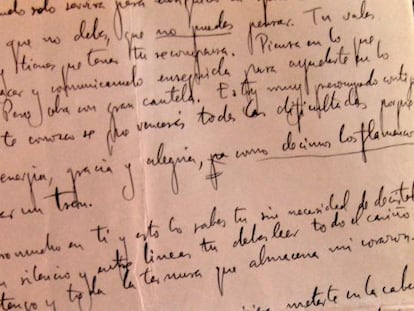 solo serviría para
que no debes, que no puedes pensar. Tu vales
y tienes que tener tu recompensa. Piensa en lo que
y comunícamelo enseguida para ayudarte en lo
Pero obra con gran cautela. Estoy muy preocupado
te conozco se que vencerás todas las dificultades porque
energía, gracia y alegría, como decimos los flamencos
un tren.
mucho en ti y esto lo sabes tu sin necesidad de
silencio y entre líneas tu debes leer todo el cariño
tengo y toda la ternura que almacena mi corazón.
meterte en la